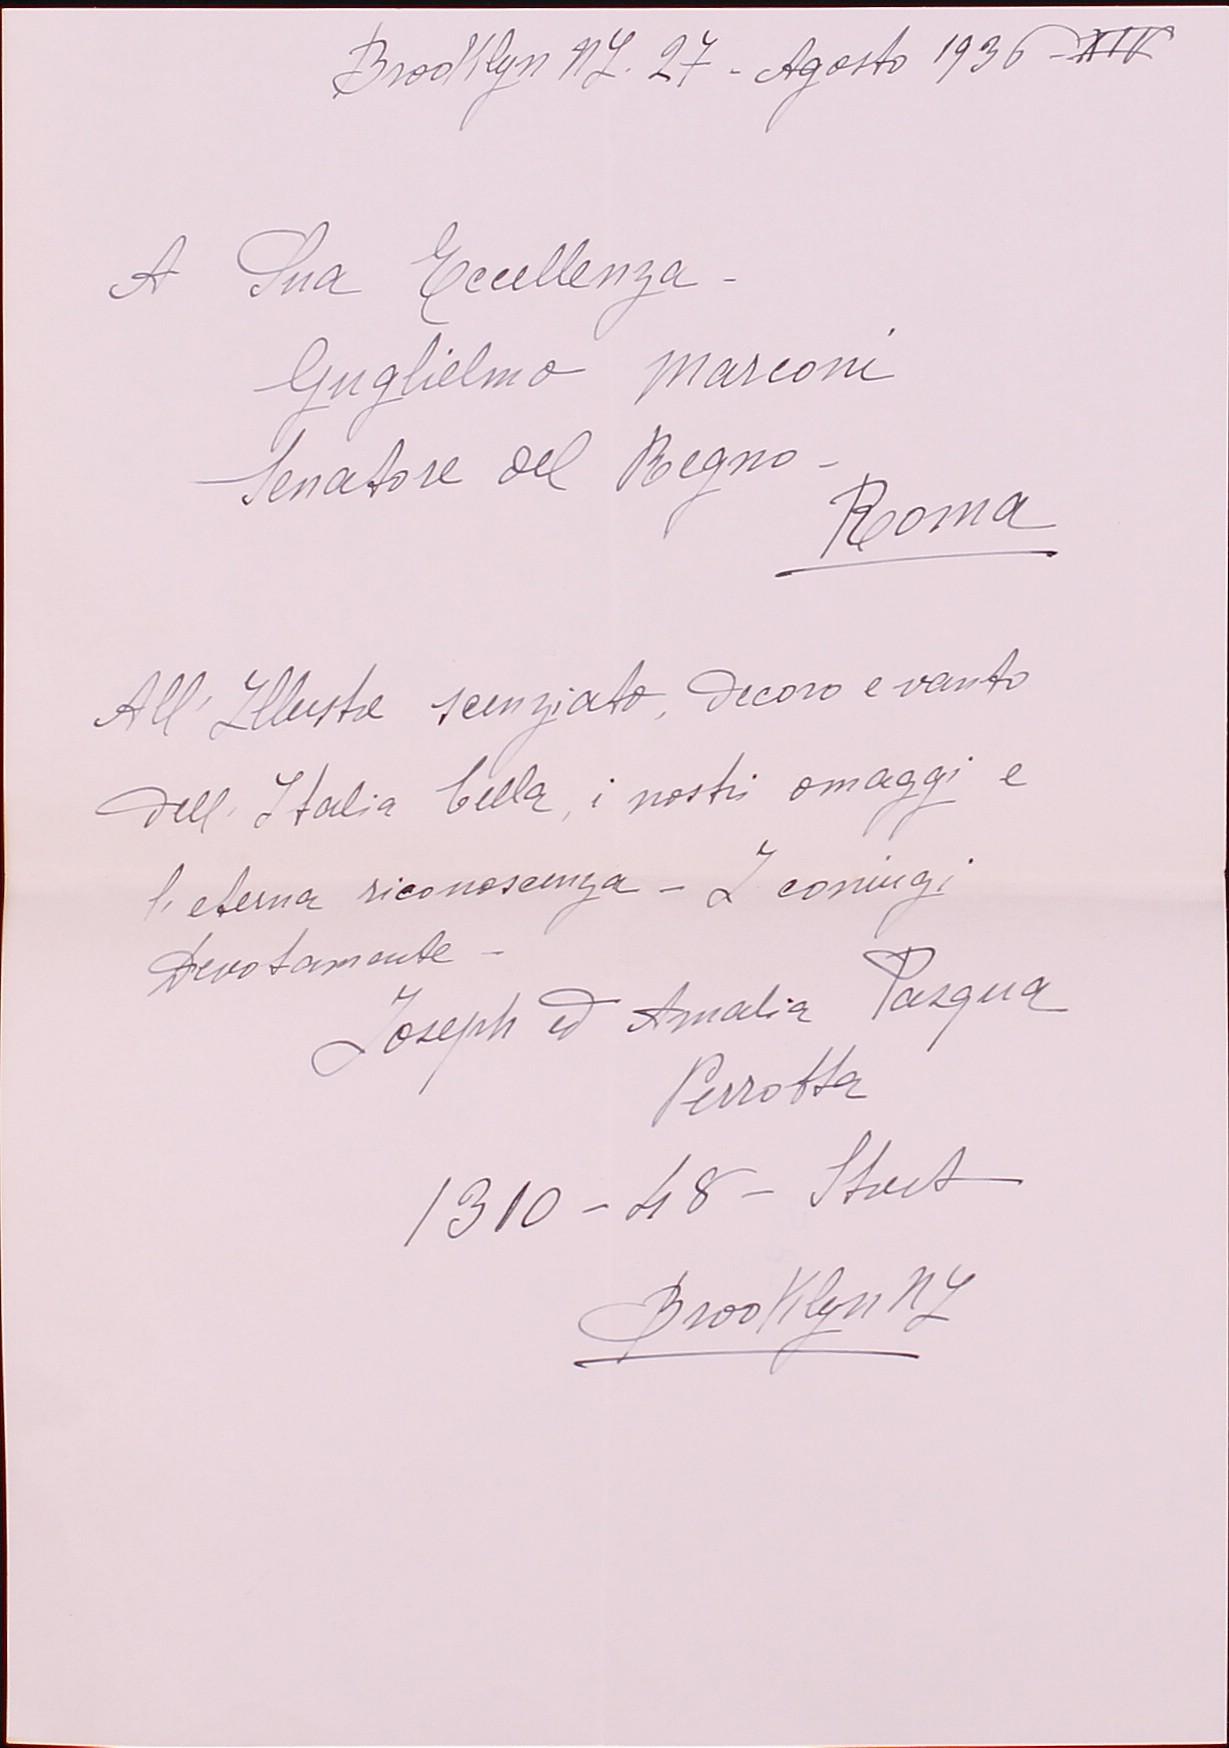 Brooklyn NY. 27 - Agosto 1936 - XIV
A Sua Eccellenza -
Guglielmo Marconi
Senatore del Regno -
Roma
All' Illustre scenziato, decoro e vanto
dell' Italia bella, i nostri omaggi e
l'eterna riconoscenza - I coniugi
Devotamente -
Joseph ed Amalia Pasqua
Perrotta
1310 - 48 - Street
Brooklyn NY